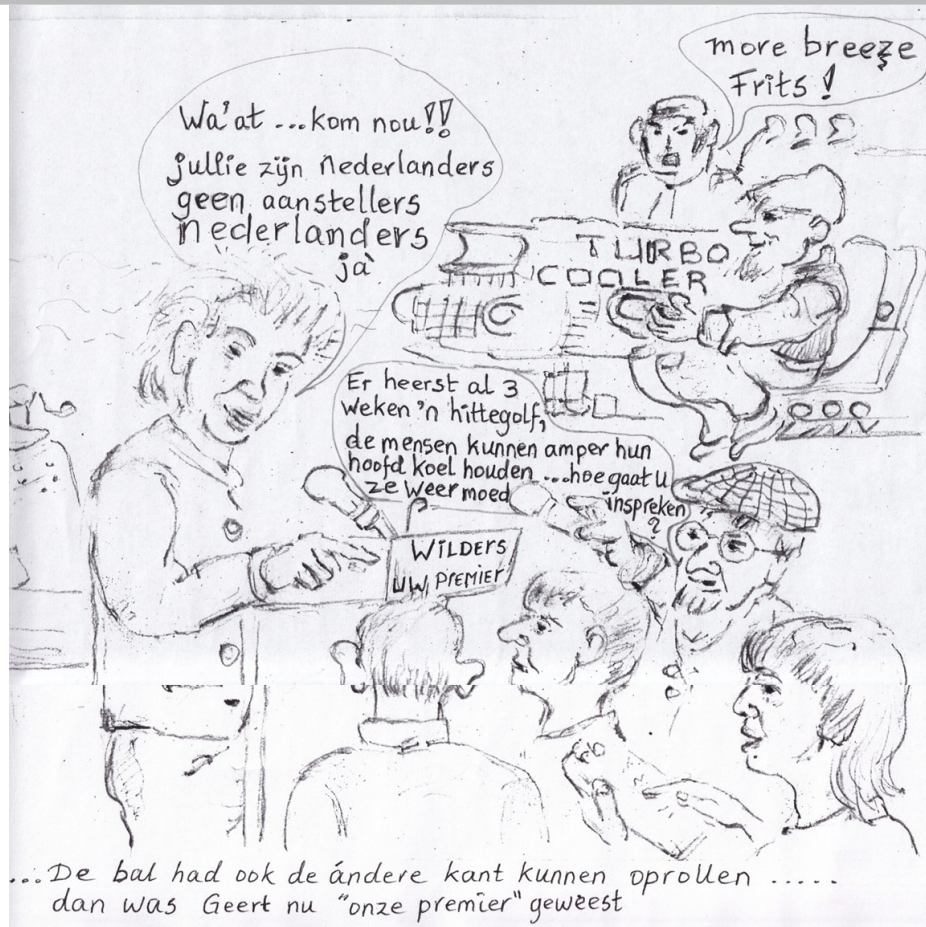 more breeze
Frits !
Wa'at ...kom nou!!
jullie zijn nederlanders
geen aanstellers
nederlanders
jà
TURBO
COOLER
Er heerst al 3
weken 'n hittegolf,
de mensen kunnen amper hun
hoofd koel houden ....hoe gaat u
ze weer moed inspreken
?
WILDERS
UW PREMIER
...De bal had ook de ándere kant kunnen oprollen .....
dan was Geert nu "onze premier" geweest